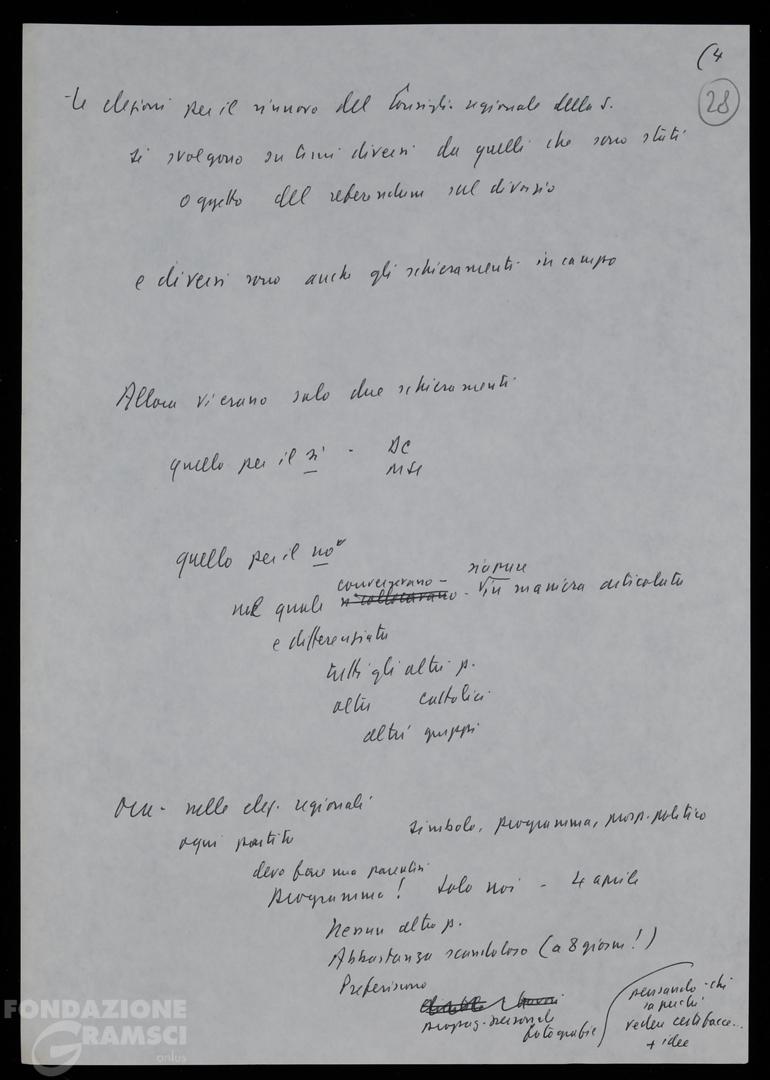 (4
28
- Le elezioni per il rinnovo del Consiglio regionale della S.
si svolgono su temi diversi da quelli che sono stati
oggetto del referendum sul divorzio
e diversi sono anche gli schieramenti in campo
Allora vi erano solo due schieramenti
quello per il si - DC
MSI
quello per il no
nel quale convergevano - sia pure in maniera articolata
e differenziata
tutti gli altri p.
altri cattolici
altri gruppi
Ora - nelle elez. regionali
ogni partito simbolo, programma, prosp. politico
devo fare una parentesi
Programma! Solo noi - 4 aprile
Nessun altro p.
Abbastanza scandaloso (a 8 giorni!)
Preferiscono
propag. personale
fotografie
pensando - chi
sa perché
vedere certe facce...
+ idee
FONDAZIONE
GRAMSCI
onlus